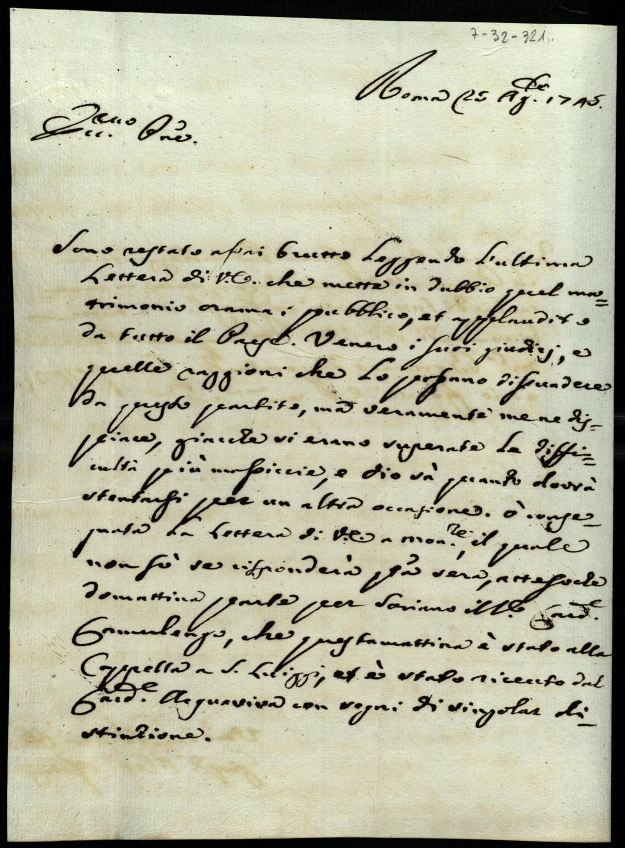 7-32-321.
Roma 25 Ag. 1745.
Ecc. Pne.
Sono restato assai brutto Leggendo L'ultima
Lettera di V.E. che mette in dubbio quel ma=
trimonio oramai pubblico, et applaudito
da tutto il Paese. Venero i suoi giudizj, e
quelle raggioni che Lo possano dissuadere
da questo partito, ma veramente me ne dis-
piace, giacche vi erano superate Le diffi=
cultà più massiccie, e dio sà quanto dovrà
stentarsi per un altra occasione. ò conse-
gnata La Lettera di V.E. a Mon.re, il quale
non sò se risponderà qta sera, attesoche
domattina parte per Soriano il Sr. Card.l
Camerlengo, che questamattina è stato alla
Cappella a S. Luiggi, et è stato riceuto dal
Card.l Acquaviva con segni di singolar di-
stinzione.